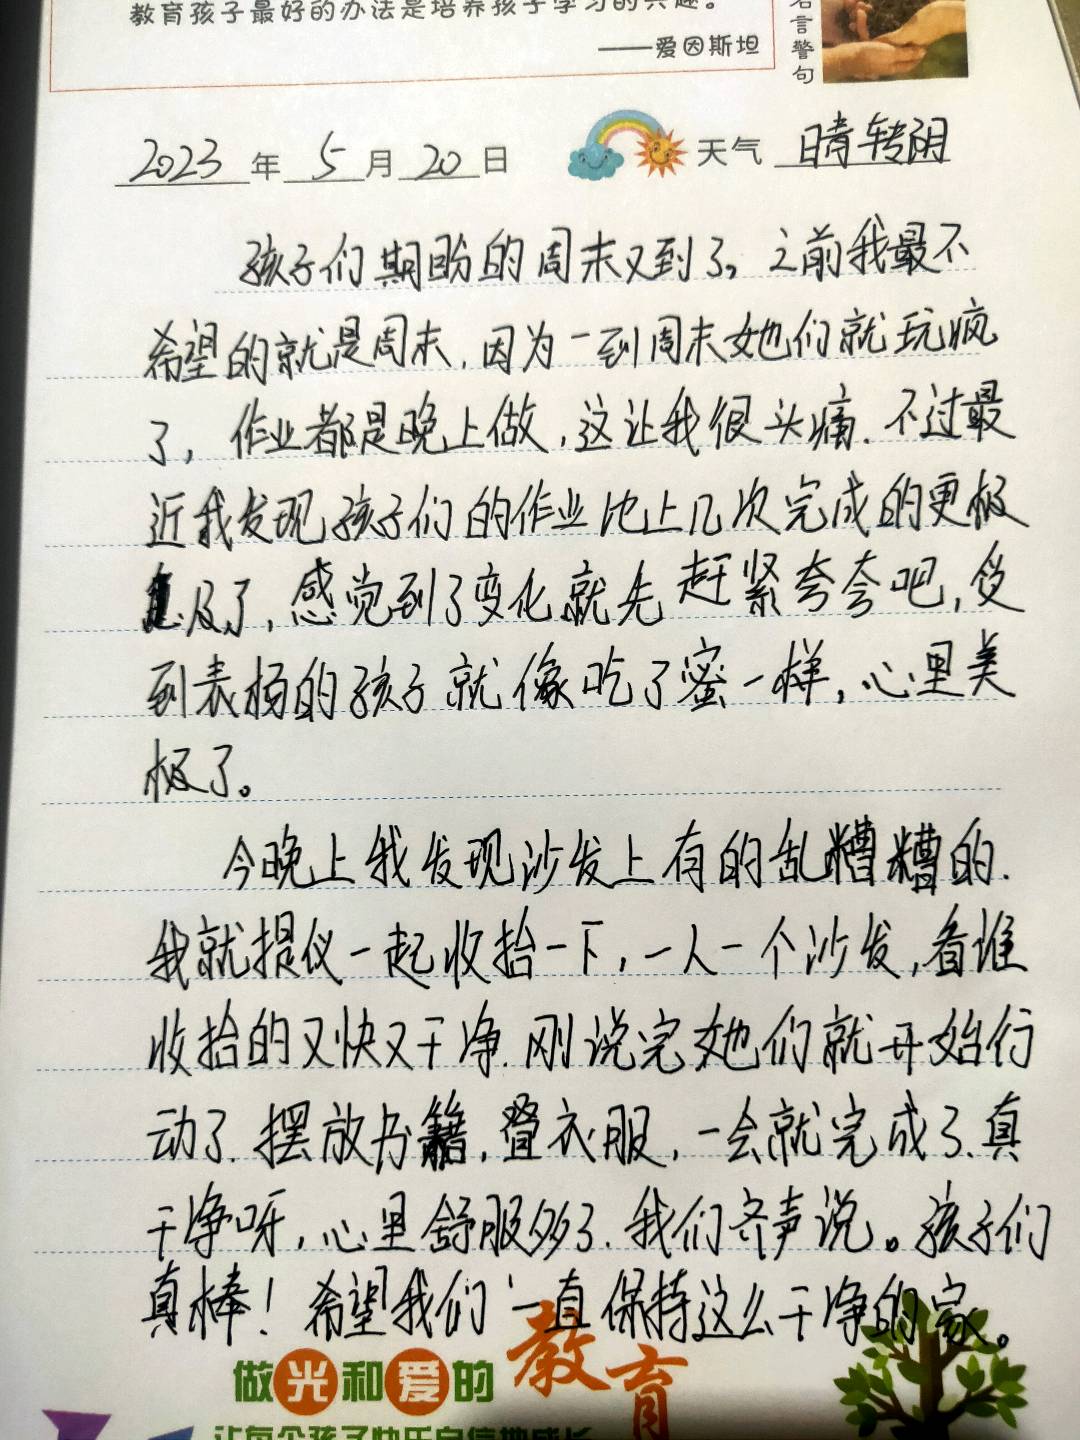 教育孩子最好的办法是培养孩子学习的兴趣。
——爱因斯坦
名言警句
2023年5月20日 天气 晴转阴
孩子们期盼的周末又到了。之前我最不
希望的就是周末,因为一到周末她们就玩疯
了,作业都是晚上做,这让我很头痛.不过最
近我发现孩子们的作业比上几次完成的更极
及了,感觉到了变化就先赶紧夸夸吧,受
到表杨的孩子就像吃了蜜一样,心里美
极了。
今晚上我发现沙发上有的乱糟糟的.
我就提仪一起收拾一下,一人一个沙发,看谁
收拾的又快又干净.刚说完她们就开始行
动了.摆放书籍,叠衣服,一会就完成了.真
干净呀,心里舒服多了.我们齐声说。孩子们
真棒!希望我们一直保持这么干净的家。
做光和爱的教育
让每个孩子快乐自信地成长